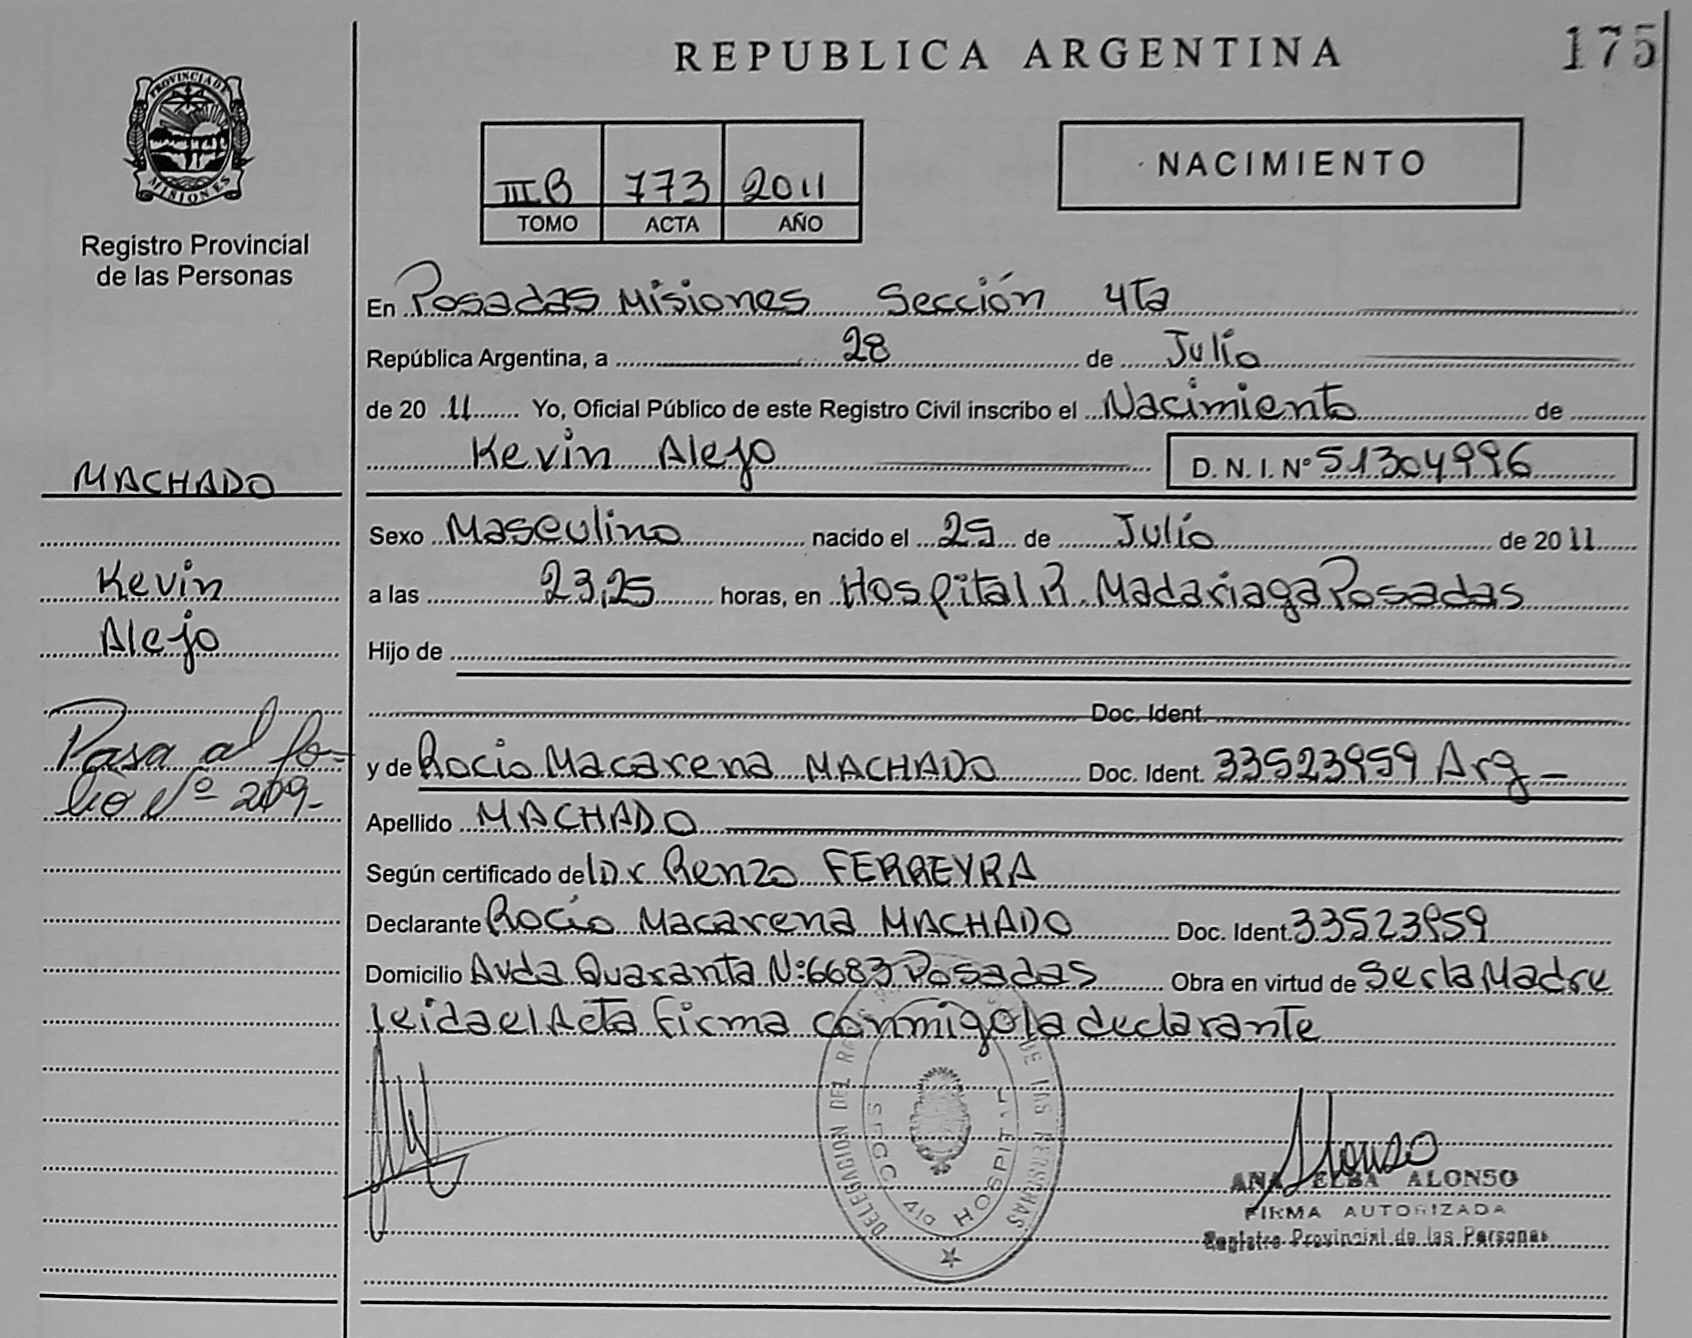 REPUBLICA ARGENTINA
175
PROVINCIA DE
MISIONES
Registro Provincial
de las Personas
III B 773 2011
TOMO ACTA AÑO
NACIMIENTO
En Posadas Misiones Sección 4ta
República Argentina, a 28 de Julio
de 20 11 Yo, Oficial Público de este Registro Civil inscribo el Nacimiento de
Kevin Alejo D. N. I. Nº 51304996
MACHADO
Kevin
Alejo
Pasa al fo-
lio Nº 209-
Sexo Masculino nacido el 25 de Julio de 20 11
a las 23,25 horas, en Hospital R. Madariaga Posadas
Hijo de
Doc. Ident.
y de Rocio Macarena MACHADO Doc. Ident. 33523959 Arg -
Apellido MACHADO
Según certificado de Dr Renzo FERREYRA
Declarante Rocio Macarena MACHADO Doc. Ident. 33523959
Domicilio Avda Quaranta Nº 6683 Posadas Obra en virtud de Ser la Madre
leida el Acta firma conmigo la declarante
DELEGACION DEL DE LAS PERSONAS
SECC 4ta HOSPITAL
Alonso
ANA ELBA ALONSO
FIRMA AUTORIZADA
Registro Provincial de las Personas